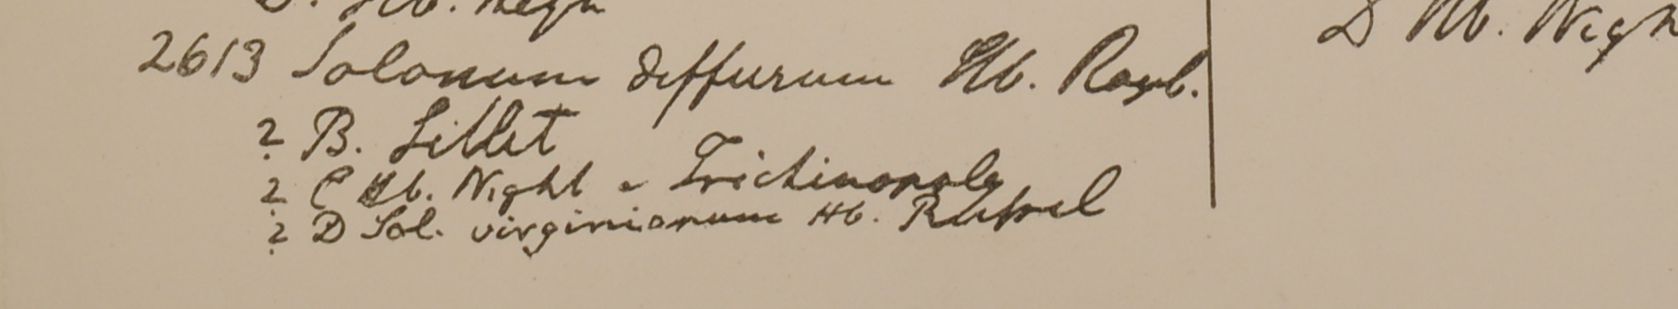 2613 Solonum diffusum Hb. Roxb.
? B. Sillet
? C Hb. Night e Trichinopoly
? D Sol. virginianum Hb. Russel
D Hb.